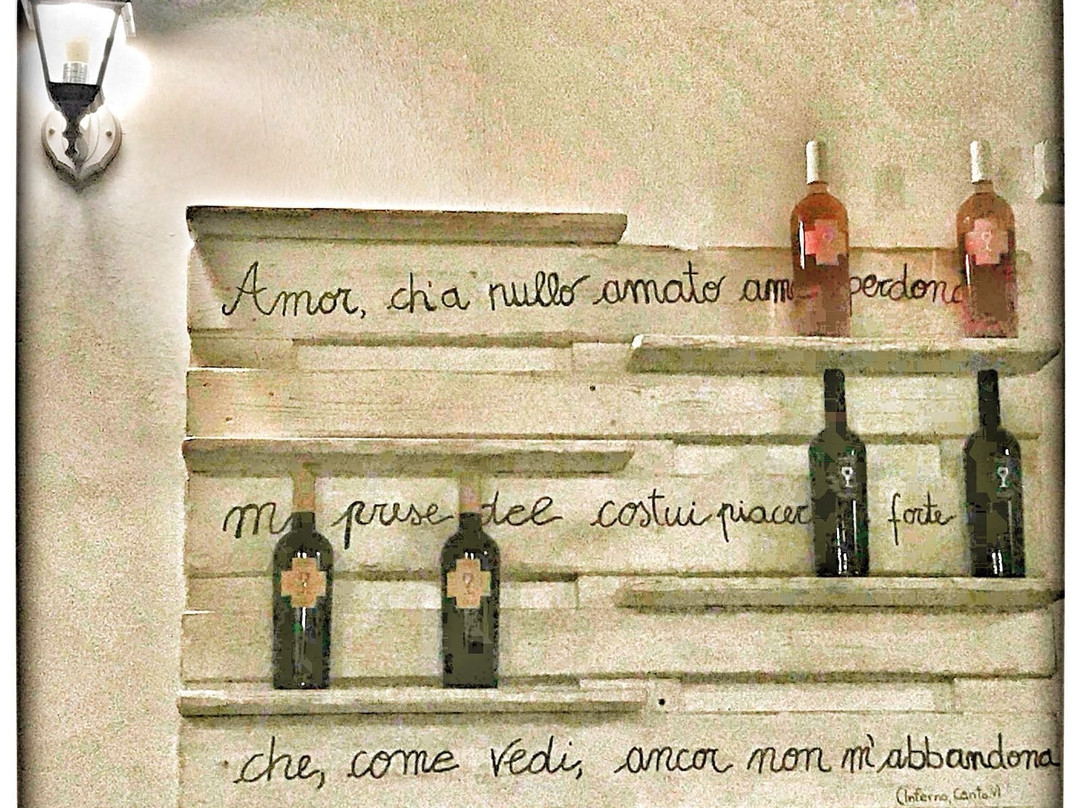 Amor, ch'a nullo amato am perdona
m prese del costui piacer forte
che, come vedi, ancor non m'abbandona
(Inferno, Canto V)